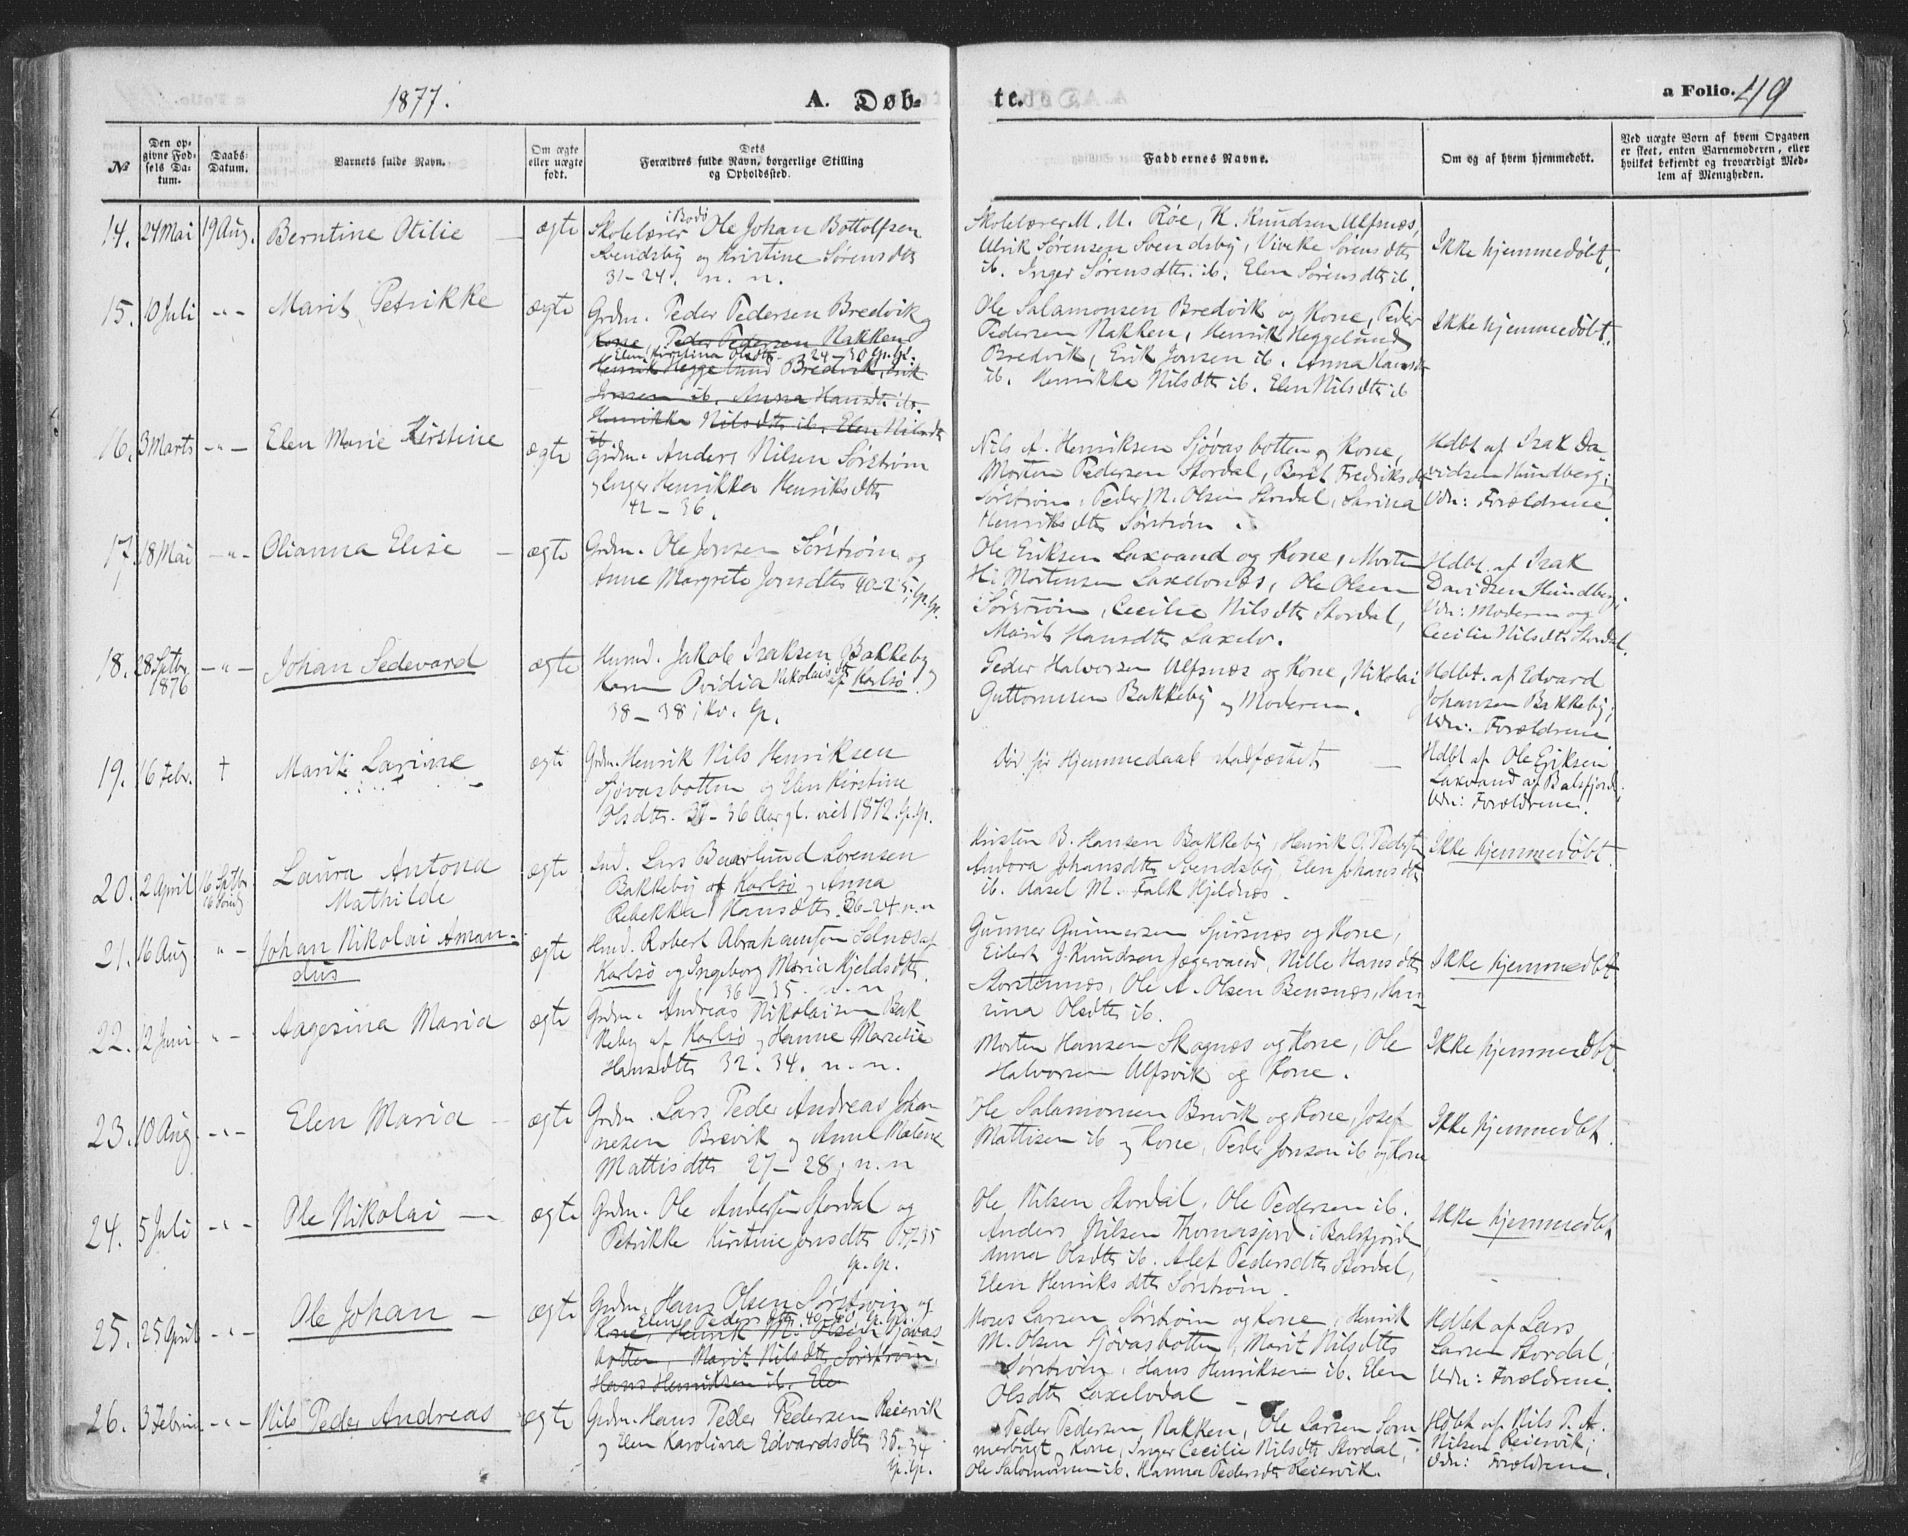 1877.
A. Døb-
№
Den op-
givne Fød-
sels Da-
tum.
Daabs-
Datum.
Barnets fulde Navn.
Om ægte
eller uægte
født.
Dets
Forældres fulde Navn, borgerlige Stilling
og Opholdssted.
14.
24 Mai
19 Aug.
Berntine Otilie
ægte
i Bodø
Skolelærer Ole Johan Bottolfsen
Svendsby og Kristine Sørensdtr
31-24. n. n.
15.
10 Juli
-"-
Marit Petrikke
ægte
Grdm. Peder Pedersen Bredvik og
Kone, Peder Pedersen Nakken
Elen Kirstina Olsdtr. 24-30 Gp. Gp.
Henrik Heggelund Bredvik, Erik
Jonsen ib. Anna Hansdtr ib.
Henrikke Nilsdtr ib. Elen Nilsdtr
ib
16.
3 Marts
-"-
Elen Marie Kirstine
ægte
Grdm. Anders Nilsen Sørstrøm
og Inger Henrikka Henriksdtr
42-36.
17.
18 Mai
-"-
Olianna Elise
ægte
Grdm. Ole Jonsen Sørstrøm og
Anne Margrete Jonsdtr 40-25; Gp. Gp.
18.
28 Septbr
1876
-"-
Johan Sedevard
ægte
Husmd. Jakob Isaksen Bakkeby og
Karen Ovidia Nikolaisdtr af Karlsø
38-38; Kv. Gp.
19.
16 Febr.
†
Marit Larine
ægte
Grdm. Henrik Nils Henriksen
Sjøvasbotten og Elen Kirstine
Olsdtr. 37-36 Aar gl. viet 1872. Gp. Gp.
20.
2 April
16 Septbr
Laura Antona
Mathilde
ægte
Ind. Lars Baarlund Lorensen
Bakkeby af Karlsø og Anna
Rebekka Hansdtr. 36-24 n. n
21.
16 Aug
"-
Johan Nikolai Aman-
dus
ægte
Husmd. Robert Abrahamsen Solnæs af
Karlsø og Ingeborg Maria Kjeldsdtr.
36-35. n. n
22.
12 Juni
"-
Aagesina Maria
ægte
Grdm. Andreas Nikolaisen Bak
keby af Karlsø og Hanne Marselie
Hansdtr 32. 34. n. n.
23.
10 Aug
-"-
Elen Maria
ægte
Grdm. Lars Peder Andreas Johan
nesen Brevik og Anne Malene
Mattisdtr 27-28; n. n
24.
5 Juli
-"-
Ole Nikolai
ægte
Grdm. Ole Andersen Stordal og
Petrikke Kirstine Jensdtr 37-35
Gp. Gp.
25.
25 April
-"-
Ole Johan
ægte
Grdm. Hans Olsen Sørstrøm og
Elen Pedersdtr 40-40 Gp. Gp.
Kone, Henrik M. Olsen Sjøvas
botten, Marit Nilsdtr Sørstrøm,
Hans Henriksen ib. Elen
26.
3 Februar
-"-
Nils Peder Andreas
ægte
Grdm. Hans Peder Pedersen Reiervik
og Elen Karolina Edvardsdtr 35. 34
Gp. Gp.
te.
a Folio. 49
Faddernes Navne.
Om og af hvem hjemmedøbt.
Ved uægte Børn af hvem Opgaven
er skeet, enten Barnemoderen, eller
hvilket bekjendt og troværdigt Med-
lem af Menigheden.
Skolelærer M. U. Røe, K. Knudsen Ulfsnæs,
Ulrik Sørensen Svendsby, Viveke Sørensdtr
ib. Inger Sørensdtr. ib. Elen Sørensdtr ib.
Ikke hjemmedøbt.
Ole Salamonsen Bredvik og Kone, Peder
Pedersen Nakken, Henrik Heggelund
Bredvik, Erik Jonsen ib. Anna Hansdtr
ib. Henrikke Nilsdtr ib. Elen Nilsdtr ib
Ikke hjemmedøbt.
Nils A. Henriksen Sjøvasbotten og Kone,
Morten Pedersen Stordal, Berit Fredriksdtr
Sørstrøm, Peder M. Olsen Stordal, Larina
Henriksdtr Sørstrøm
Hdbt af Isak Da-
vidsen Hundberg;
Udn: Forældrene.
Ole Eriksen Laxvand og Kone, Morten
H. Mortensen Laxelvnæs, Ole Olsen
Sørstrøm, Cecilie Nilsdtr Stordal,
Marit Hansdtr Laxelv.
Hdbt af Isak
Davidsen Hundberg;
Udn: Moderen og
Cecilie Nilsdtr Stordal.
Peder Halvorsen Ulfsnæs og Kone, Nikolai
Guttormsen Bakkeby og Moderen.
Hdbt. af Edvard
Johansen Bakkeby;
Udn: Forældrene
Død før Hjemmedaab stadfæstet
Hdbt af Ole Eriksen
Laxvand af Balsfjord;
Udn: Forældrene.
Kirsten B. Hansen Bakkeby, Henrik O. Peders
Andora Johansdtr Svendsby, Elen Johansdtr
ib. Aasel M. Falk Kjeldnæs.
Ikke hjemmedøbt.
Gunner Gunnersen Spirsnæs og Kone,
Eilert J. Knudsen Jægervand, Nille Hansdtr
Storstennæs, Ole A. Olsen Bensnæs, Han-
sina Olsdtr ib.
Ikke hjemmedbt
Morten Hansen Skognæs og Kone, Ole
Halvorsen Ulfsvik og Kone.
Ikke hjemmedbt.
Ole Salamonsen Brevik og Kone, Josef
Mattisen ib og Kone, Peder Jonsen ib og Kone
Ikke hjemmedbt.
Ole Nilsen Stordal, Ole Pedersen ib.
Anders Nilsen Thomasjord i Balsfjord
Anna Olsdtr ib. Alet Pedersdtr Stordal,
Elen Henriksdtr Sørstrøm.
Ikke hjemmedbt
Moses Larsen Sørstrøm og Kone, Henrik
M. Olsen Sjøvasbotten, Marit Nilsdtr
Sørstrøm, Hans Henriksen ib. Elen
Olsdtr Laxelvdal
Hdbt af Lars
Larsen Stordal;
Udn: Forældrene.
Peder Pedersen Nakken, Ole Larsen Som
merbugt og Kone, Inger Cecilie Nilsdtr Stordal,
Ole Salomonsen ib. Hanna Pedersdtr Reiervik.
Hdbt af Nils P. A.
Nilsen Reiervik;
Udn: Forældrene.